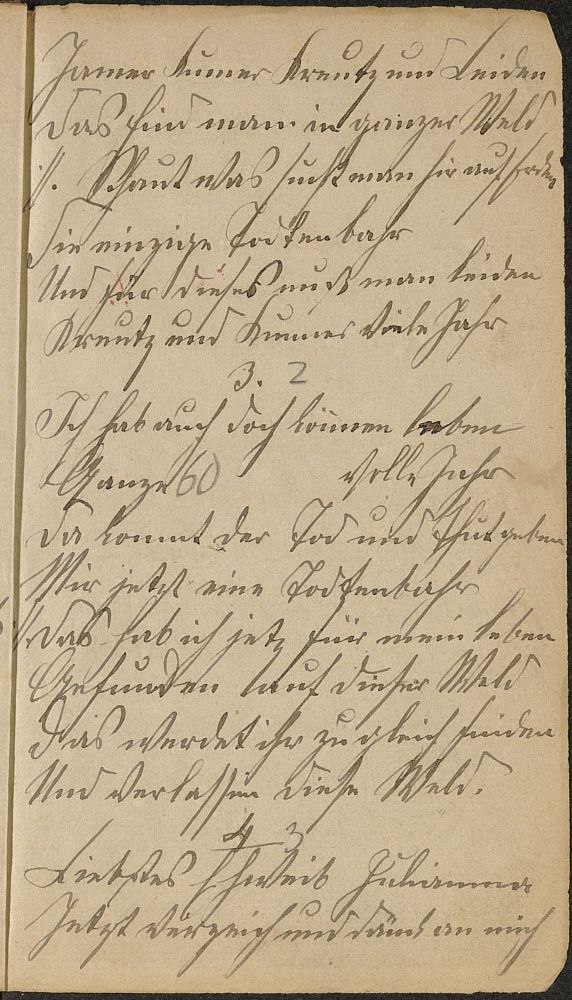 Jamer Kumer Kreutz und Leiden
Das find man in ganzer Weld
://: Schaut was sucht man hir auf Erden
Die einzige Todtenbahr
Und für dieses muß man leiden
Kreutz und Kumer Viele Jahr
3. 2
Ich hab auch doch können leben
Ganze 60 Volle Jahr
Da kommt der Tod und thut geben
Mir jetzt eine Todtenbahr
://: Das hab ich jetz für mein leben
Gefunden auf dieser Weld
Das werdet ihr zugleich finden
Und Verlassen diese Weld.
4 3
Liebstes Eheweib Julianna
Jetzt Verzeich und dänk an mich